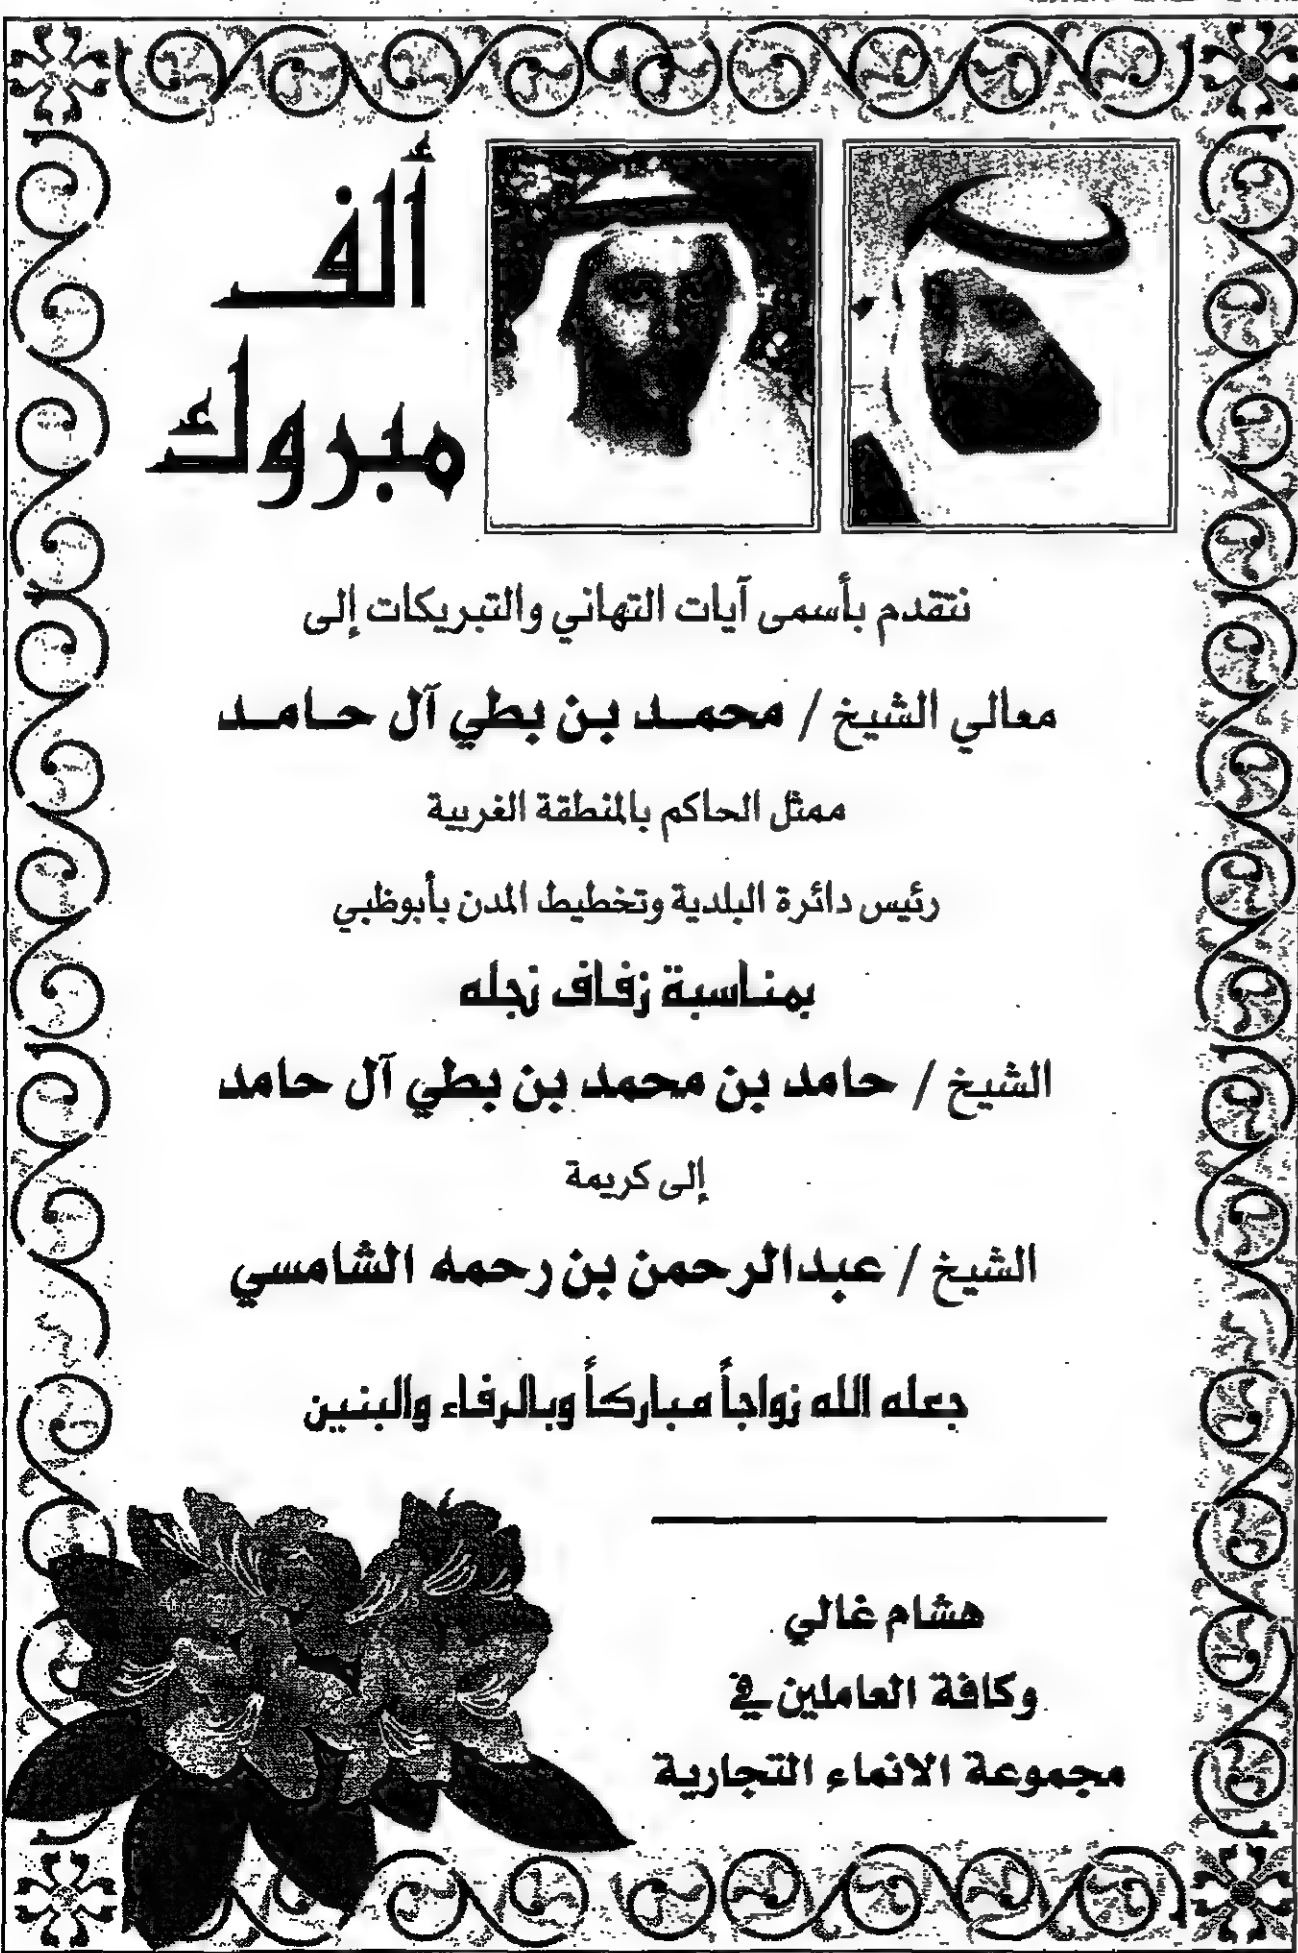 ألف
مبروك
نتقدم بأسمى آيات التهاني والتبريكات إلى
معالي الشيخ / محمد بن بطي آل حامد
ممثل الحاكم بالمنطقة الغربية
رئيس دائرة البلدية وتخطيط المدن بأبوظبي
بمناسبة زفاف نجله
الشيخ / حامد بن محمد بن بطي آل حامد
إلى كريمة
الشيخ / عبدالرحمن بن رحمه الشامسي
جعله الله زواجاً مباركاً وبالرفاء والبنين
هشام غالي
وكافة العاملين في
مجموعة الانماء التجارية